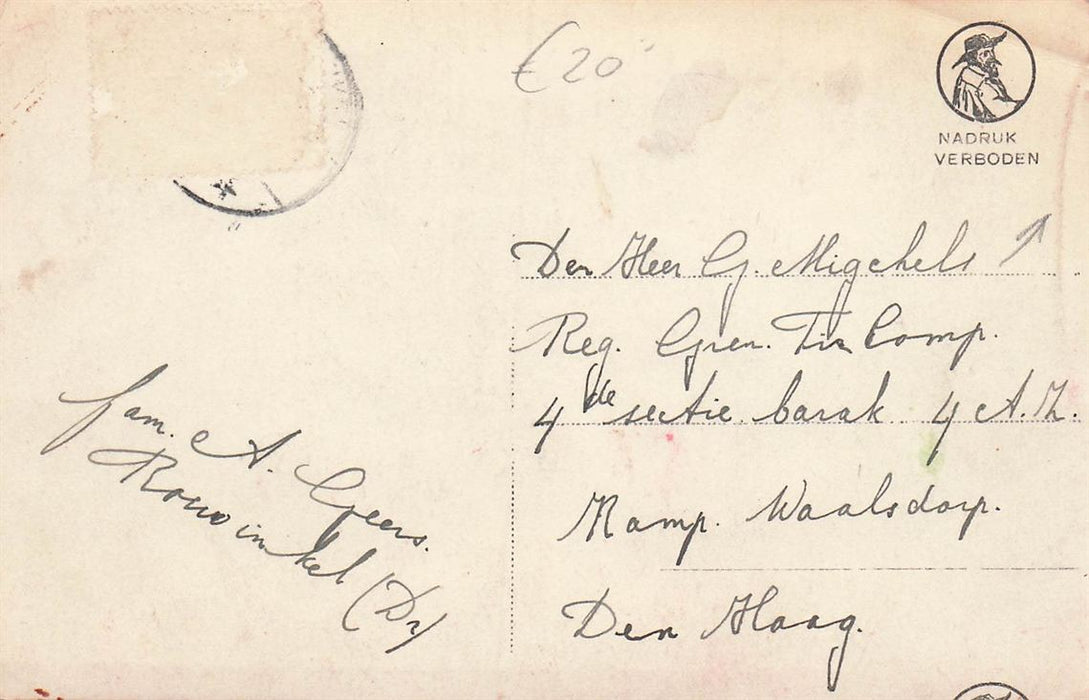 €20
NADRUK
VERBODEN
Den Heer G. Migchels
Reg. Gren. Comp.
4de sectie barak 4 A.
Kamp. Waalsdorp.
Den Haag.
fam. A. Geers.
Rouwinkel (Dr)